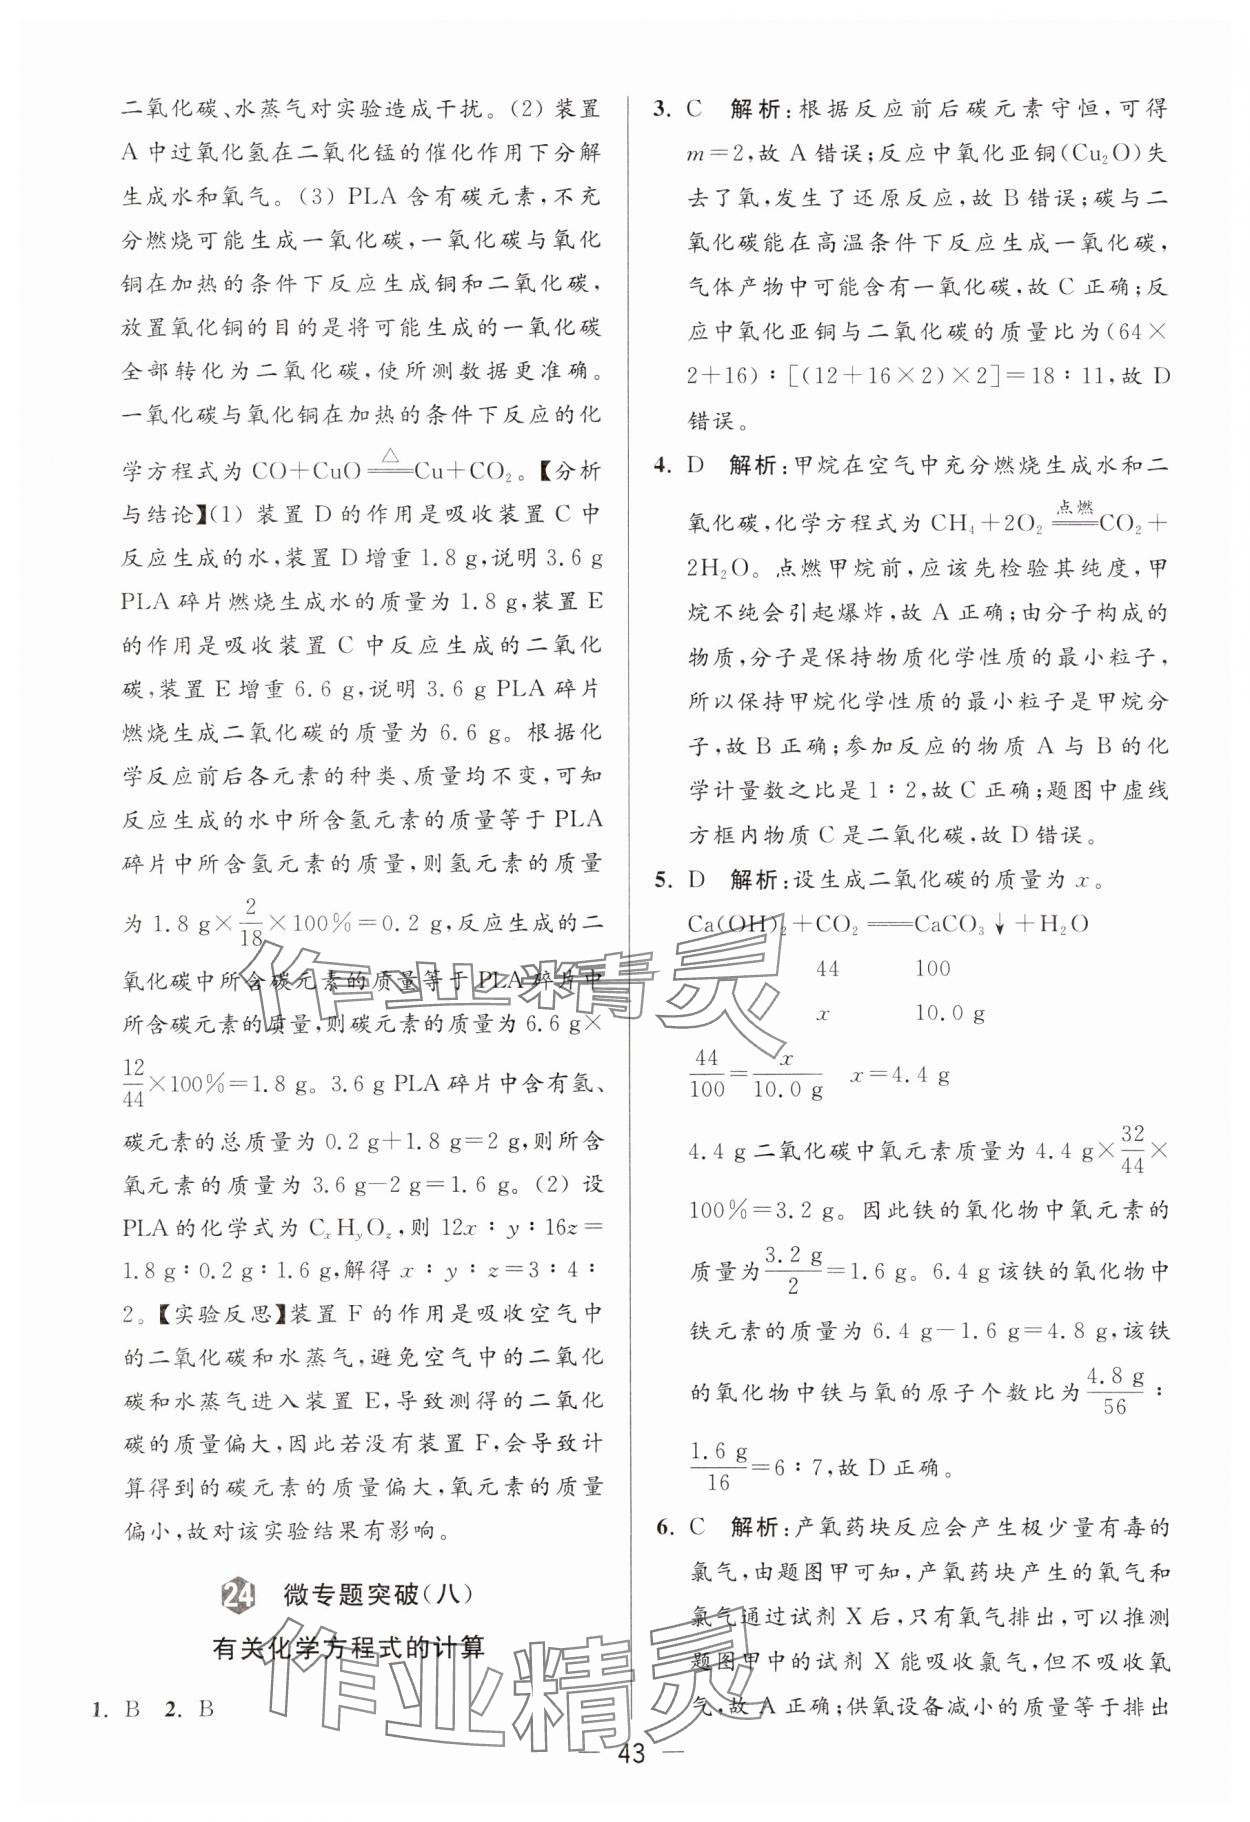 二氧化碳、水蒸气对实验造成干扰。(2) 装置
A中过氧化氢在二氧化锰的催化作用下分解
生成水和氧气。(3) PLA 含有碳元素,不充
分燃烧可能生成一氧化碳,一氧化碳与氧化
铜在加热的条件下反应生成铜和二氧化碳,
放置氧化铜的目的是将可能生成的一氧化碳
全部转化为二氧化碳,使所测数据更准确。
一氧化碳与氧化铜在加热的条件下反应的化
学方程式为 CO+CuO \xlongequal{△} Cu+CO₂。【分析
与结论】(1) 装置 D 的作用是吸收装置 C 中
反应生成的水,装置 D增重 1.8 g,说明 3.6 g
PLA 碎片燃烧生成水的质量为 1.8 g,装置 E
的作用是吸收装置 C 中反应生成的二氧化
碳,装置 E增重 6.6 g,说明 3.6 g PLA 碎片
燃烧生成二氧化碳的质量为 6.6 g。根据化
学反应前后各元素的种类、质量均不变,可知
反应生成的水中所含氢元素的质量等于 PLA
碎片中所含氢元素的质量,则氢元素的质量
为 1.8 g×2/18×100%=0.2 g,反应生成的二
氧化碳中所含碳元素的质量等于 PLA 碎片中
所含碳元素的质量,则碳元素的质量为 6.6 g×
12/44×100%=1.8 g。3.6 g PLA 碎片中含有氢、
碳元素的总质量为 0.2 g+1.8 g=2 g,则所含
氧元素的质量为 3.6 g−2 g=1.6 g。(2) 设
PLA 的化学式为 CₓHᵧO_z,则 12x∶y∶16z=
1.8 g∶0.2 g∶1.6 g,解得 x∶y∶z=3∶4∶
2。【实验反思】装置 F 的作用是吸收空气中
的二氧化碳和水蒸气,避免空气中的二氧化
碳和水蒸气进入装置 E,导致测得的二氧化
碳的质量偏大,因此若没有装置 F,会导致计
算得到的碳元素的质量偏大,氧元素的质量
偏小,故对该实验结果有影响。
24 微专题突破(八)
有关化学方程式的计算
1. B 2. B
3. C 解析:根据反应前后碳元素守恒,可得
m=2,故 A 错误;反应中氧化亚铜(Cu₂O)失
去了氧,发生了还原反应,故 B 错误;碳与二
氧化碳能在高温条件下反应生成一氧化碳,
气体产物中可能含有一氧化碳,故 C 正确;反
应中氧化亚铜与二氧化碳的质量比为(64×
2+16)∶[(12+16×2)×2]=18∶11,故 D
错误。
4. D 解析:甲烷在空气中充分燃烧生成水和二
氧化碳,化学方程式为 CH₄+2O₂ \xlongequal{点燃} CO₂+
2H₂O。点燃甲烷前,应该先检验其纯度,甲
烷不纯会引起爆炸,故 A 正确;由分子构成的
物质,分子是保持物质化学性质的最小粒子,
所以保持甲烷化学性质的最小粒子是甲烷分
子,故 B 正确;参加反应的物质 A 与 B 的化
学计量数之比是 1∶2,故 C 正确;题图中虚线
方框内物质 C 是二氧化碳,故 D 错误。
5. D 解析:设生成二氧化碳的质量为 x。
Ca(OH)₂+CO₂══CaCO₃↓+H₂O
44 100
x 10.0 g
44/100=x/10.0 g x=4.4 g
4.4 g 二氧化碳中氧元素质量为 4.4 g×32/44×
100%=3.2 g。因此铁的氧化物中氧元素的
质量为3.2 g/2=1.6 g。6.4 g 该铁的氧化物中
铁元素的质量为 6.4 g−1.6 g=4.8 g,该铁
的氧化物中铁与氧的原子个数比为4.8 g/56∶
1.6 g/16=6∶7,故 D 正确。
6. C 解析:产氧药块反应会产生极少量有毒的
氯气,由题图甲可知,产氧药块产生的氧气和
氯气通过试剂 X 后,只有氧气排出,可以推测
题图甲中的试剂 X 能吸收氯气,但不吸收氧
气,故 A 正确;供氧设备减小的质量等于排出
— 43 —
作业精灵
作业精灵